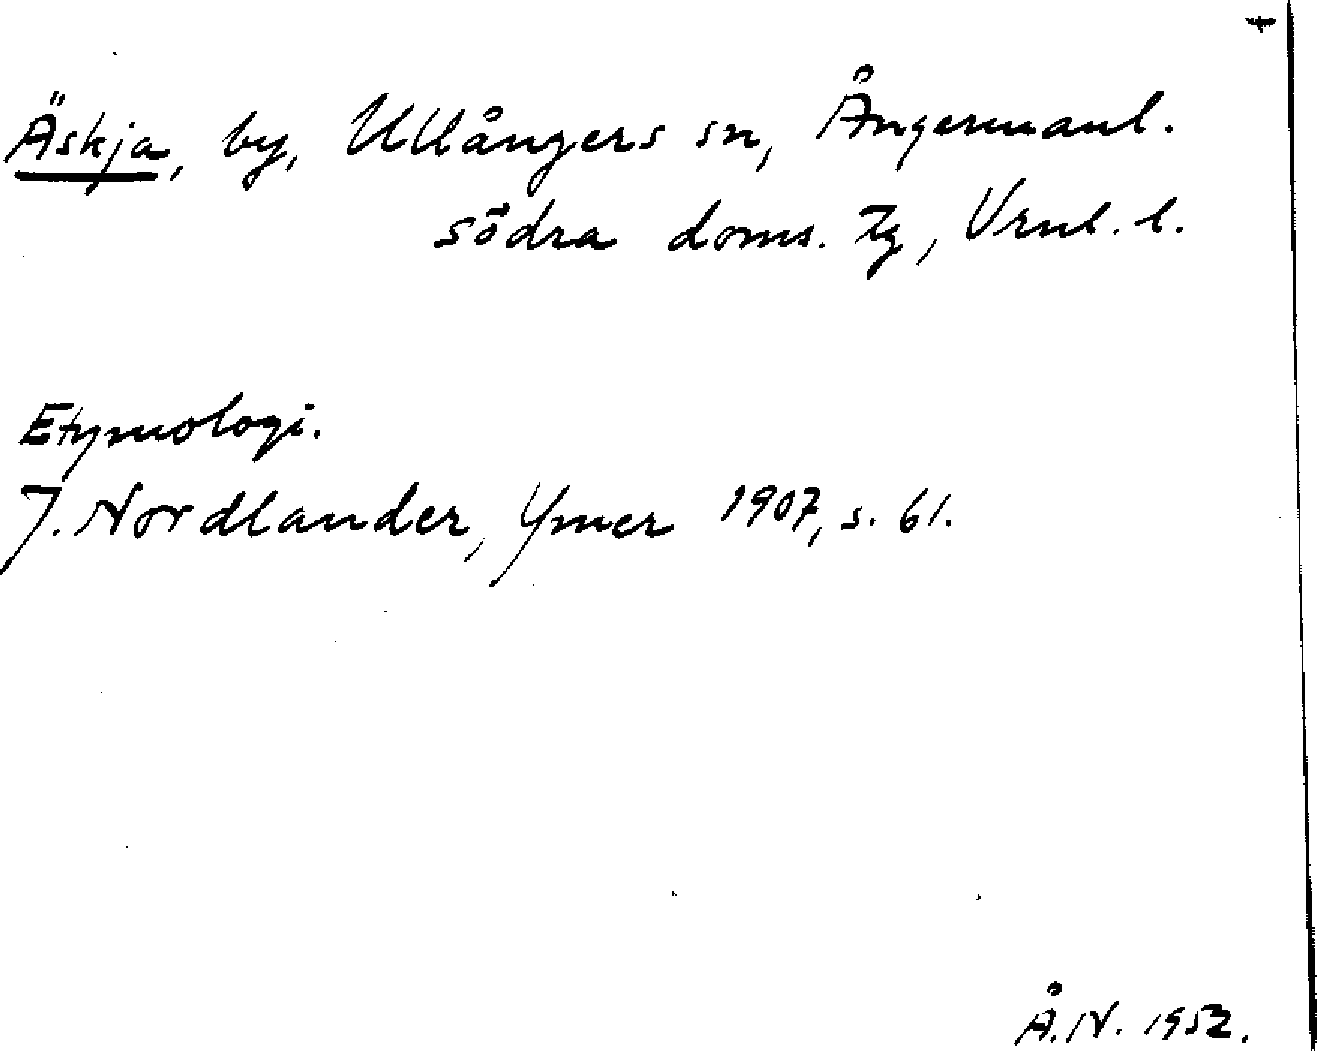 Äskja, by, Ullångers sn, Ångermanl.
södra doms. tg, Vrnl. l.
Etymologi.
J. Nordlander, Ymer 1907, s. 61.
Å.N. 1952.